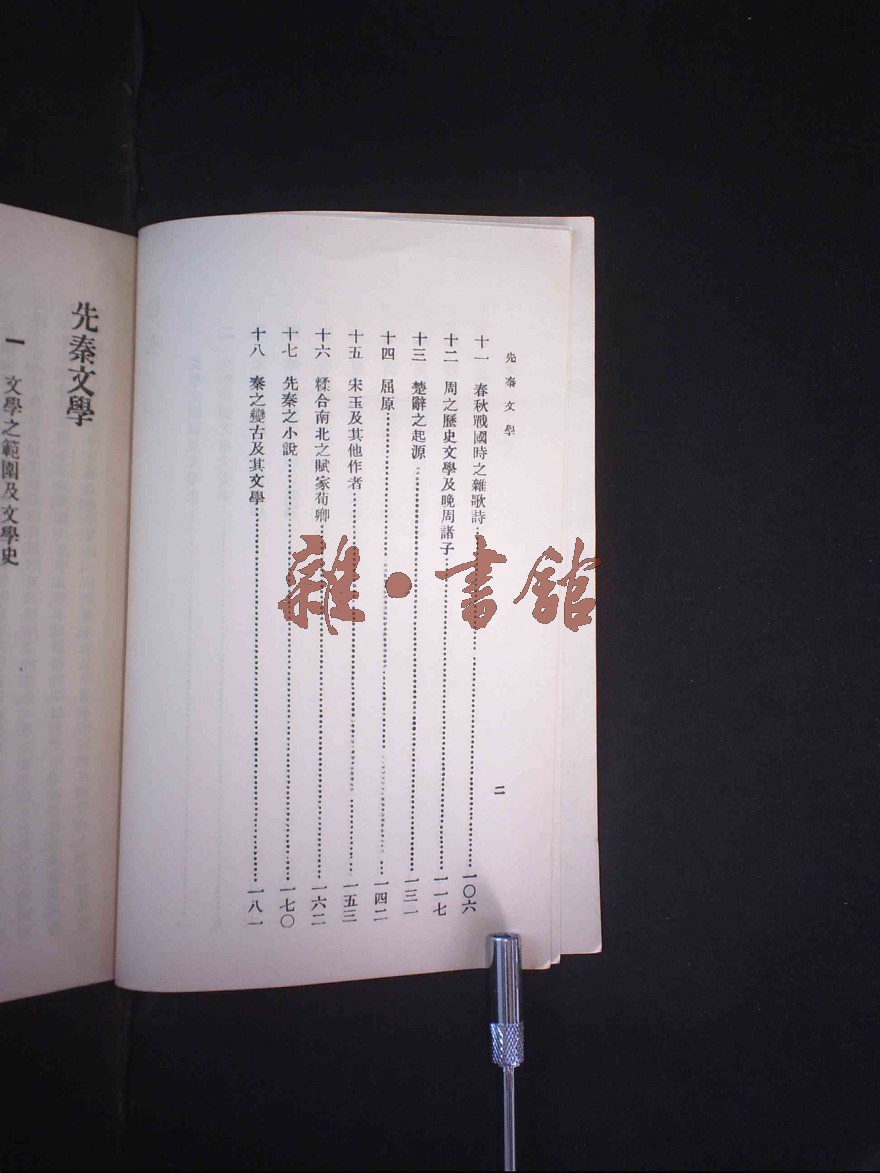 先秦文學
十一　春秋戰國時之雜歌詩……一〇六
十二　周之歷史文學及晚周諸子……一一七
十三　楚辭之起源……一三一
十四　屈原……一四二
十五　宋玉及其他作者……一五三
十六　糅合南北之賦家荀卿……一六二
十七　先秦之小說……一七〇
十八　秦之變古及其文學……一八一
二
雜·書館
先秦文學
一　文學之範圍及文學史